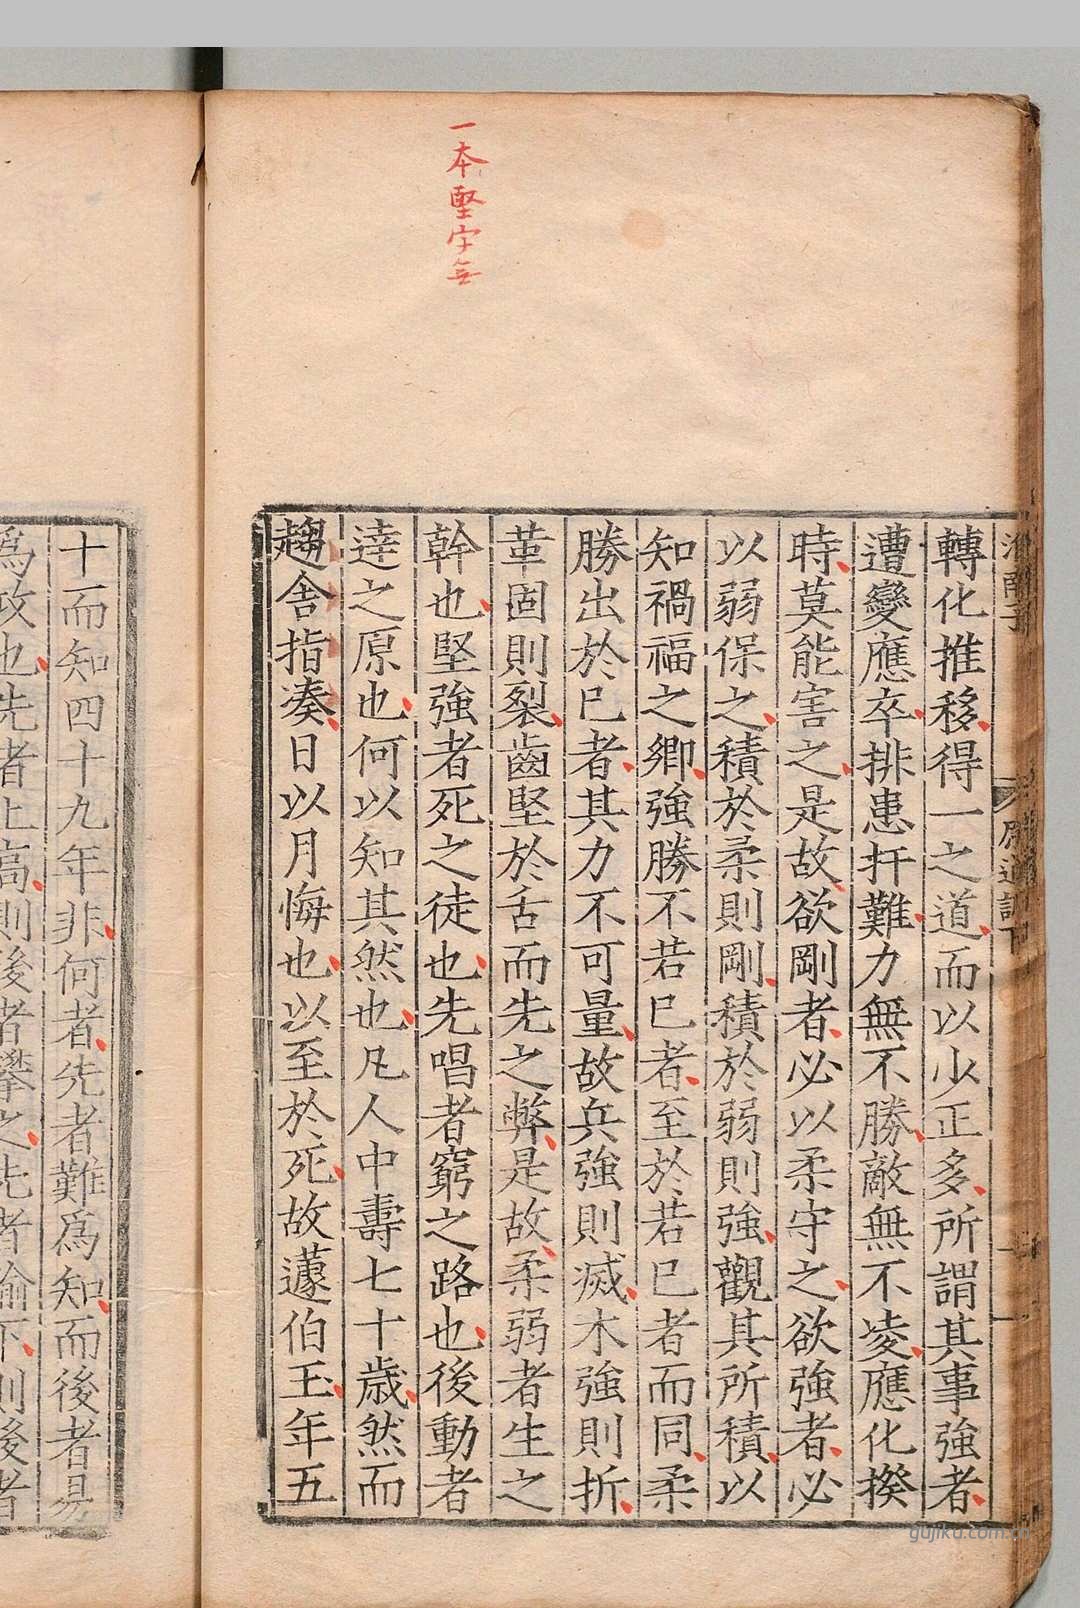 一本堅字無
轉化推移得一之道而以少正多所謂其事強者
遭變應卒排患扞難力無不勝敵無不凌應化揆
時莫能害之是故欲剛者必以柔守之欲強者必
以弱保之積於柔則剛積於弱則強觀其所積以
知禍福之鄉強勝不若已者至於若已者而同柔
勝出於已者其力不可量故兵強則滅木強則折
革固則裂齒堅於舌而先之弊是故柔弱者生之
幹也堅強者死之徒也先唱者窮之路也後動者
達之原也何以知其然也凡人中壽七十歲然而
趨舍指湊日以月悔也以至於死故蘧伯玉年五
十而知四十九年非何者先者難為知而後者易
為攻也先者上高則後者攀之先者踰下則後者
gujiku.com